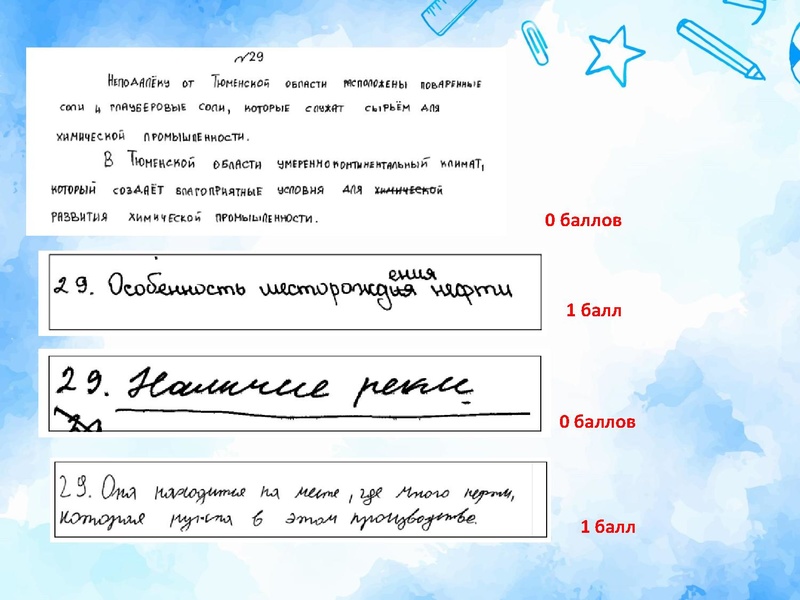 №29
Неподалёку от Тюменской области расположены поваренные
соли и глауберовые соли, которые служат сырьём для
химической промышленности.
В Тюменской области умеренноконтинентальный климат,
который создаёт благоприятные условия для химической
развития химической промышленности.
0 баллов
29. Особенность месторождения нефти
1 балл
29. Наличие реки
0 баллов
29. Она находится на месте, где много нефти,
которая нужна в этом производстве.
1 балл